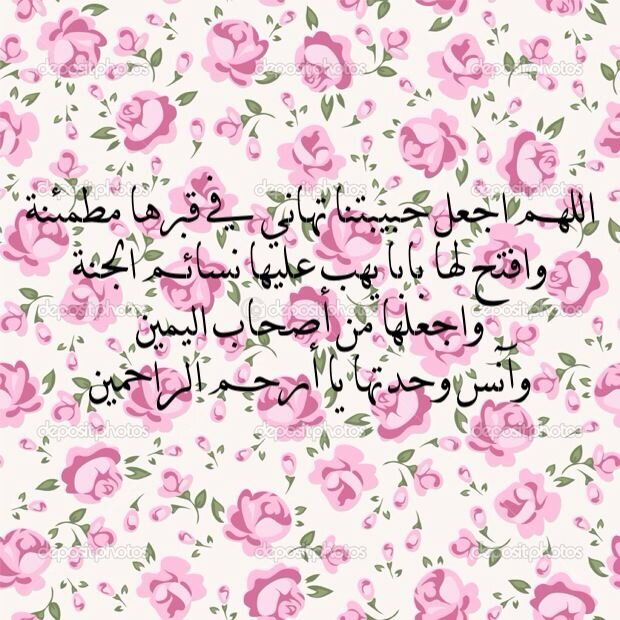 اللهم اجعل حبيبتنا تهاني في قبرها مطمئنة
وافتح لها باباً يهب عليها نسائم الجنة
واجعلها من أصحاب اليمين
وآنس وحدتها يا أرحم الراحمين
depositphotos